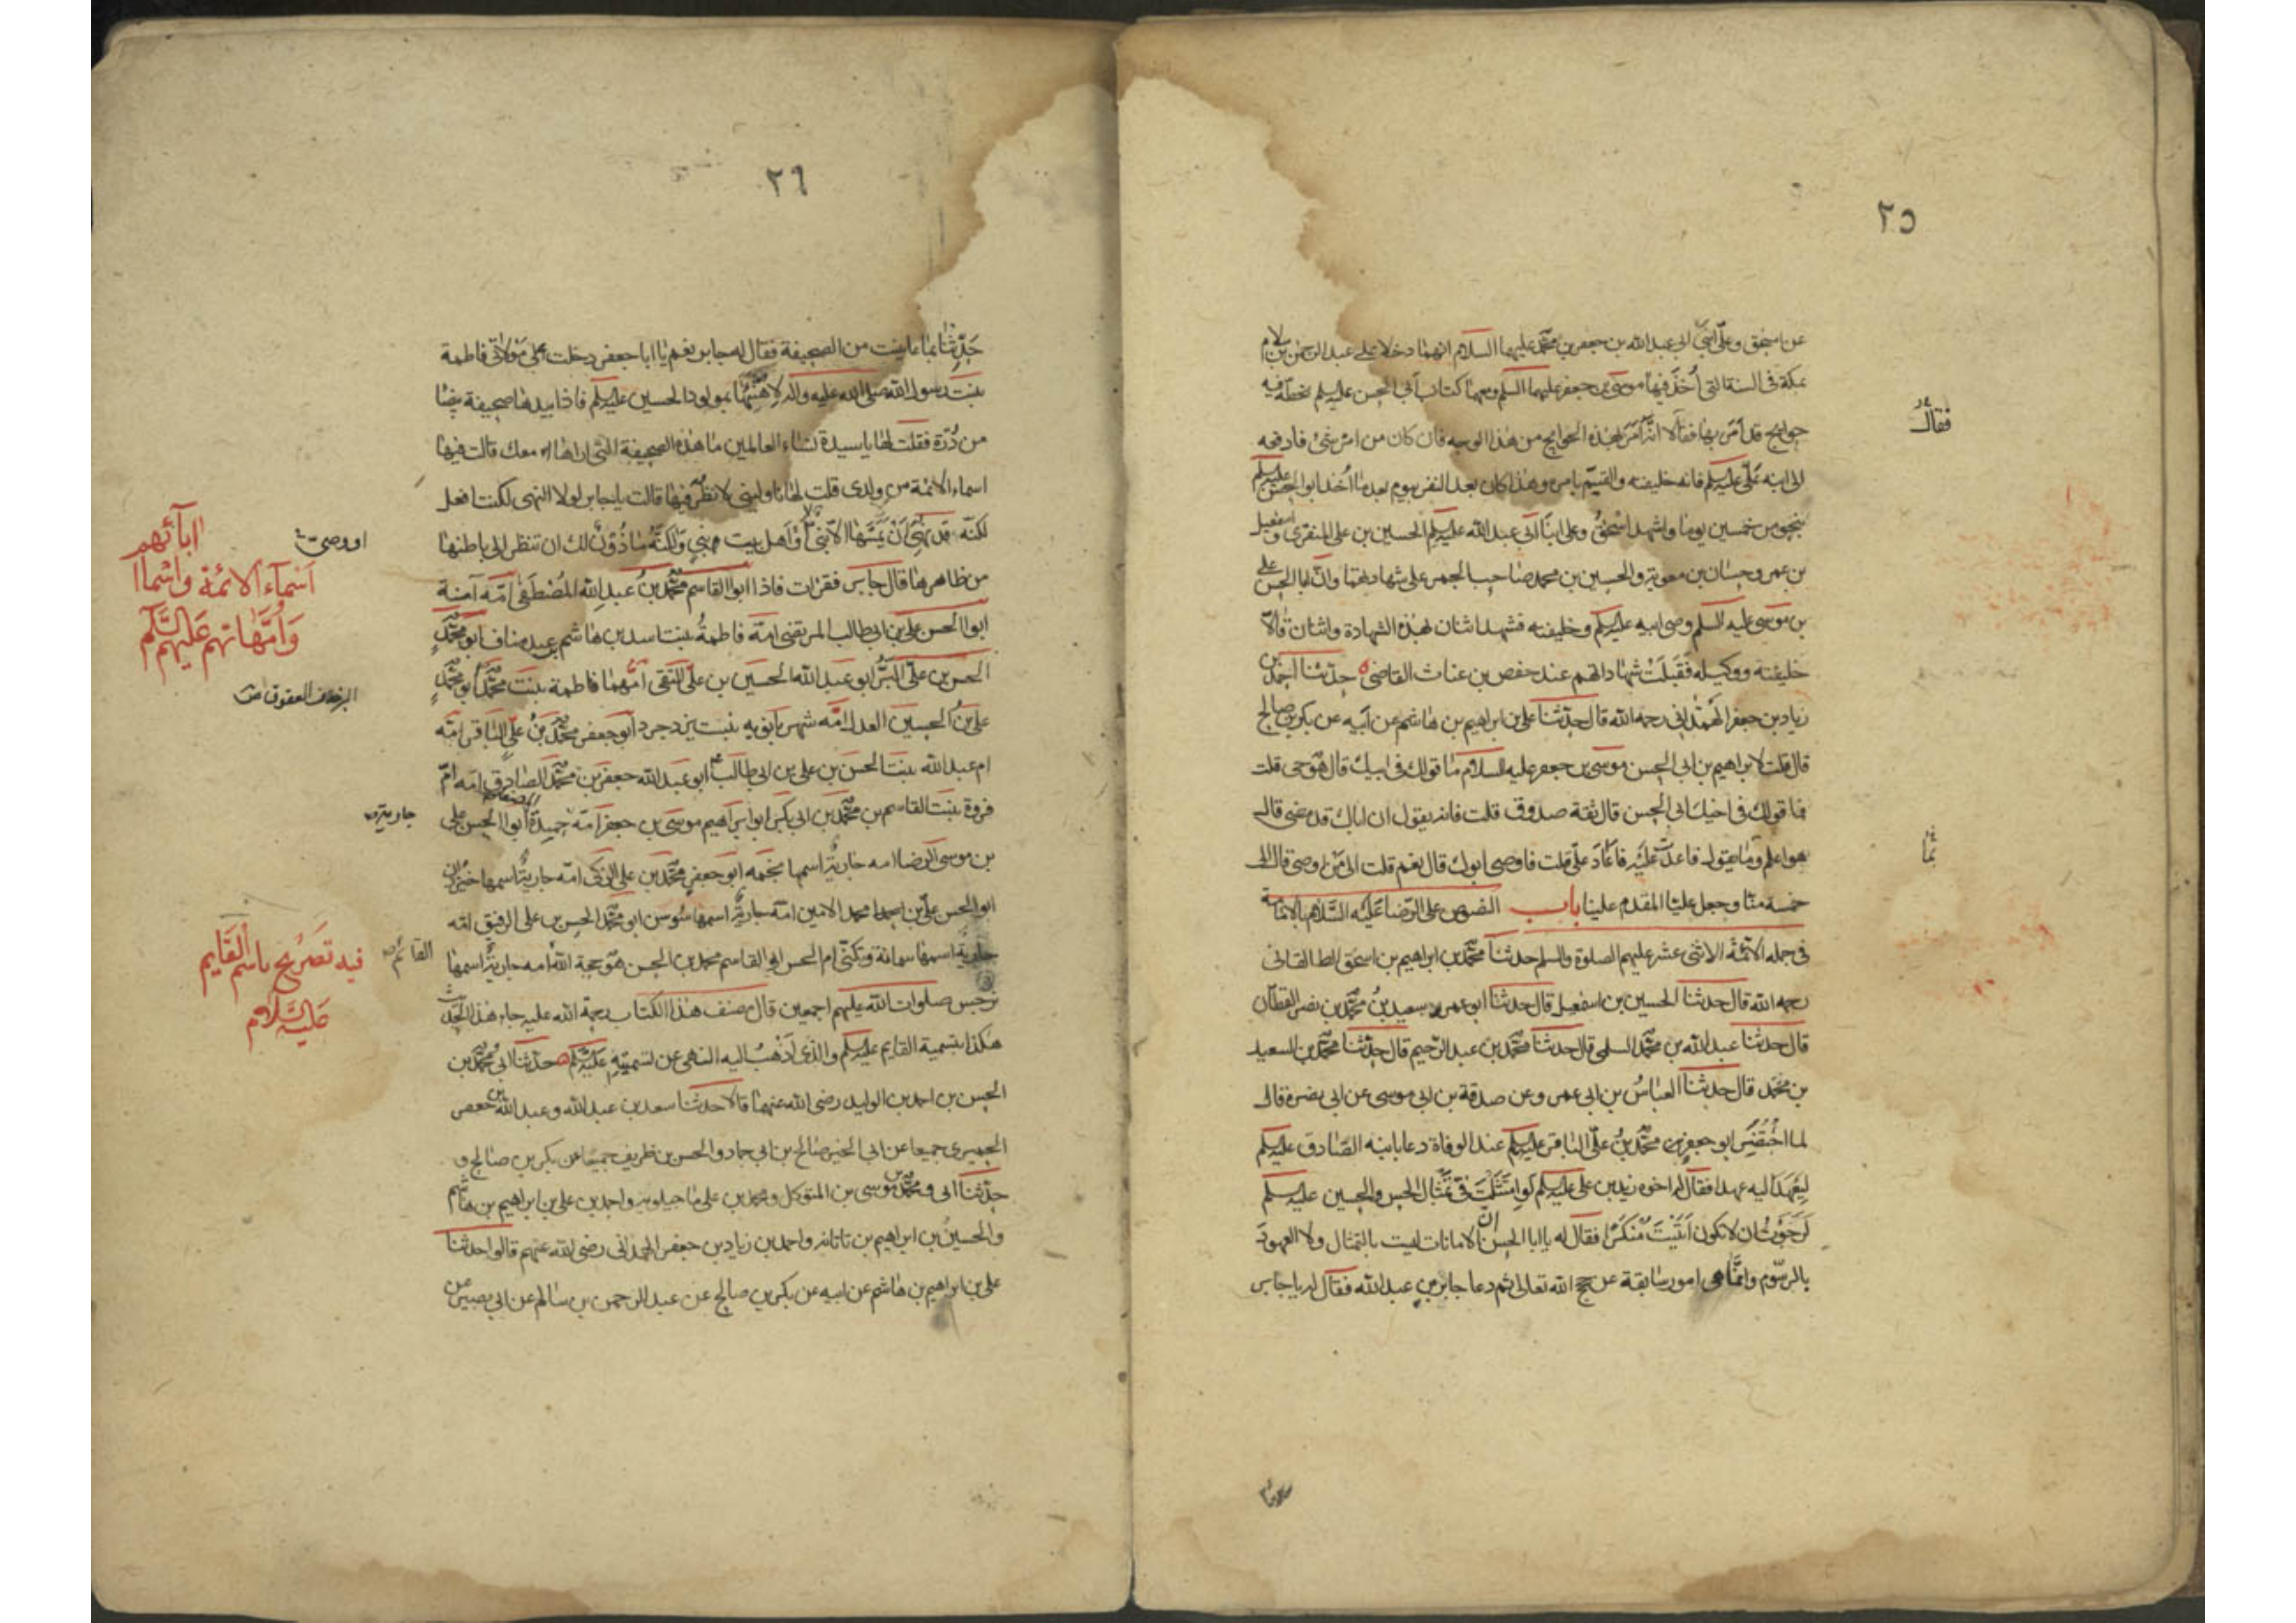 ٢٥
عن اسحق وعلى ابنى ابى عبد الله بن جعفر بن محمد عليهما السلام انهما دخلا على عبد الرحمن بن اسلم
بمكة فى السنة التى أخذ فيها موسى بن جعفر عليهما السلم ومعهما كتاب ابى الحسن عليه السلم بخطه فيه
حوايج قد امر بها فقالا انه امر بهذه الحوايج من هذا الوجه فان كان من امره شئ فادفعه
الى ابنه على عليه السلم فانه خليفته والقيم بامره وهذا كان بعد النفر بيوم بعد ما أخذ ابو الحسن عليه السلم
بنحو من خمسين يوما واشهد اسحق وعلى ابنا ابى عبد الله عليه السلم الحسين بن على المنقرى واسمعيل
بن عمر وحسان بن معوية والحسين بن محمد صاحب الختم على شهادتهما وان ابا الحسن على
بن موسى عليه السلم وصى ابيه عليه السلم وخليفته فشهد اثنان بهذه الشهادة واثنان قالا
خليفته ووكيله فقبلت شهادتهم عند حفص بن غياث القاضى حدثنا احمد بن
زياد بن جعفر الهمدانى رحمه الله قال حدثنا على بن ابراهيم بن هاشم عن ابيه عن بكر بن صالح
قال قلت لابراهيم بن ابى الحسن موسى بن جعفر عليه السلام ما قولك فى ابيك قال هو حى قلت
فما قولك فى اخيك ابى الحسن قال ثقة صدوق قلت فانه يقول ان اباك قد مضى قال
هو اعلم وما يقول فاعدت عليه فاعاد على قلت فاوصى ابوك قال نعم قلت الى من اوصى قال الى
خمسة منا وجعل عليا المقدم علينا باب النصوص على الرضا عليه السلام بالامامة
فى جمله الائمة الاثنى عشر عليهم الصلوة والسلم حدثنا محمد بن ابراهيم بن اسحق الطالقانى
رحمه الله قال حدثنا الحسين بن اسمعيل قال حدثنا ابو عمرو سعيد بن محمد بن نصر القطان
قال حدثنا عبد الله بن محمد السلمى قال حدثنا محمد بن عبد الرحيم قال حدثنا محمد بن السعيد
بن محمد قال حدثنا العباس بن ابى عمرو عن صدقة بن ابى موسى عن ابى نضرة قال
لما احتضر ابو جعفر محمد بن على الباقر عليه السلم عند الوفاة دعا بابنه الصادق عليه السلم
ليعهد اليه عهدا فقال له اخوه زيد بن على عليه السلم لو امتثلت فى تمثال الحسن والحسين عليه السلم
لرجوت ان لا تكون اتيت منكرا فقال له يا ابا الحسن ان الامانات ليست بالتمثال ولا العهود
بالرسوم وانما هى امور سابقة عن حجج الله تعالى ثم دعا جابر بن عبد الله فقال له يا جابر
فقال
ثما
حدثنا
٢٦
حدثنا بما عاينت من الصحيفة فقال له جابر نعم يا ابا جعفر دخلت على مولاتى فاطمة
بنت رسول الله صلى الله عليه واله لاهنئها بمولود الحسين عليه السلم فاذا بيدها صحيفة بيضا
من درة فقلت لها يا سيدة نساء العالمين ما هذه الصحيفة التى اراها معك قالت فيها
اسماء الائمة من ولدى قلت لها ناولينى لانظر فيها قالت يا جابر لولا النهى لكنت افعل
لكنه قد نهى ان يمسها الا نبى او اهل بيت نبى ولكنه ماذون لك ان تنظر الى باطنها
من ظاهرها قال جابر فقرات فاذا ابو القاسم محمد بن عبد الله المصطفى امه آمنة
ابو الحسن على بن ابى طالب المرتضى امه فاطمة بنت اسد بن هاشم بن عبد مناف ابو محمد
الحسن بن على البر ابو عبد الله الحسين بن على التقى امهما فاطمة بنت محمد ابو محمد
على بن الحسين العدل امه شهربانويه بنت يزدجرد ابو جعفر محمد بن على الباقر امه
ام عبد الله بنت الحسن بن على بن ابى طالب ابو عبد الله جعفر بن محمد الصادق امه ام
فروة بنت القاسم بن محمد بن ابى بكر ابو ابراهيم موسى بن جعفر امه حميدة ابو الحسن على
بن موسى الرضا امه جارية اسمها نجمه ابو جعفر محمد بن على الزكى امه جارية اسمها خيزران
ابو الحسن على بن محمد الامين امه جارية اسمها سوسن ابو محمد الحسن بن على الرفيق امه
جارية اسمها سمانة وتكنى ام الحسن ابو القاسم محمد بن الحسن هو حجة الله امه جارية اسمها
نرجس صلوات الله عليهم اجمعين قال مصنف هذا الكتاب رحمة الله عليه جاء هذا الحديث
هكذا بتسمية القايم عليه السلم والذى اذهب اليه النهى عن تسميته عليه السلم حدثنا ابى محمد بن
الحسن بن احمد بن الوليد رضى الله عنهما قالا حدثنا سعد بن عبد الله وعبد الله بن جعفر
الحميرى جميعا عن ابى الخير صالح بن ابى حماد والحسن بن ظريف جميعا عن بكر بن صالح و
حدثنا ابى ومحمد بن موسى بن المتوكل ومحمد بن على ماجيلويه واحمد بن على بن ابراهيم بن هاشم
والحسين بن ابراهيم بن تاتانه واحمد بن زياد بن جعفر الهمدانى رضى الله عنهم قالوا حدثنا
على بن ابراهيم بن هاشم عن ابيه عن بكر بن صالح عن عبد الرحمن بن سالم عن ابى بصير عن
او وصى
اسماء الائمة واسما
ابآئهم
وامهاتهم عليهم السلم
جارية
القائم
فيه تصريح باسم القايم
عليه السلام